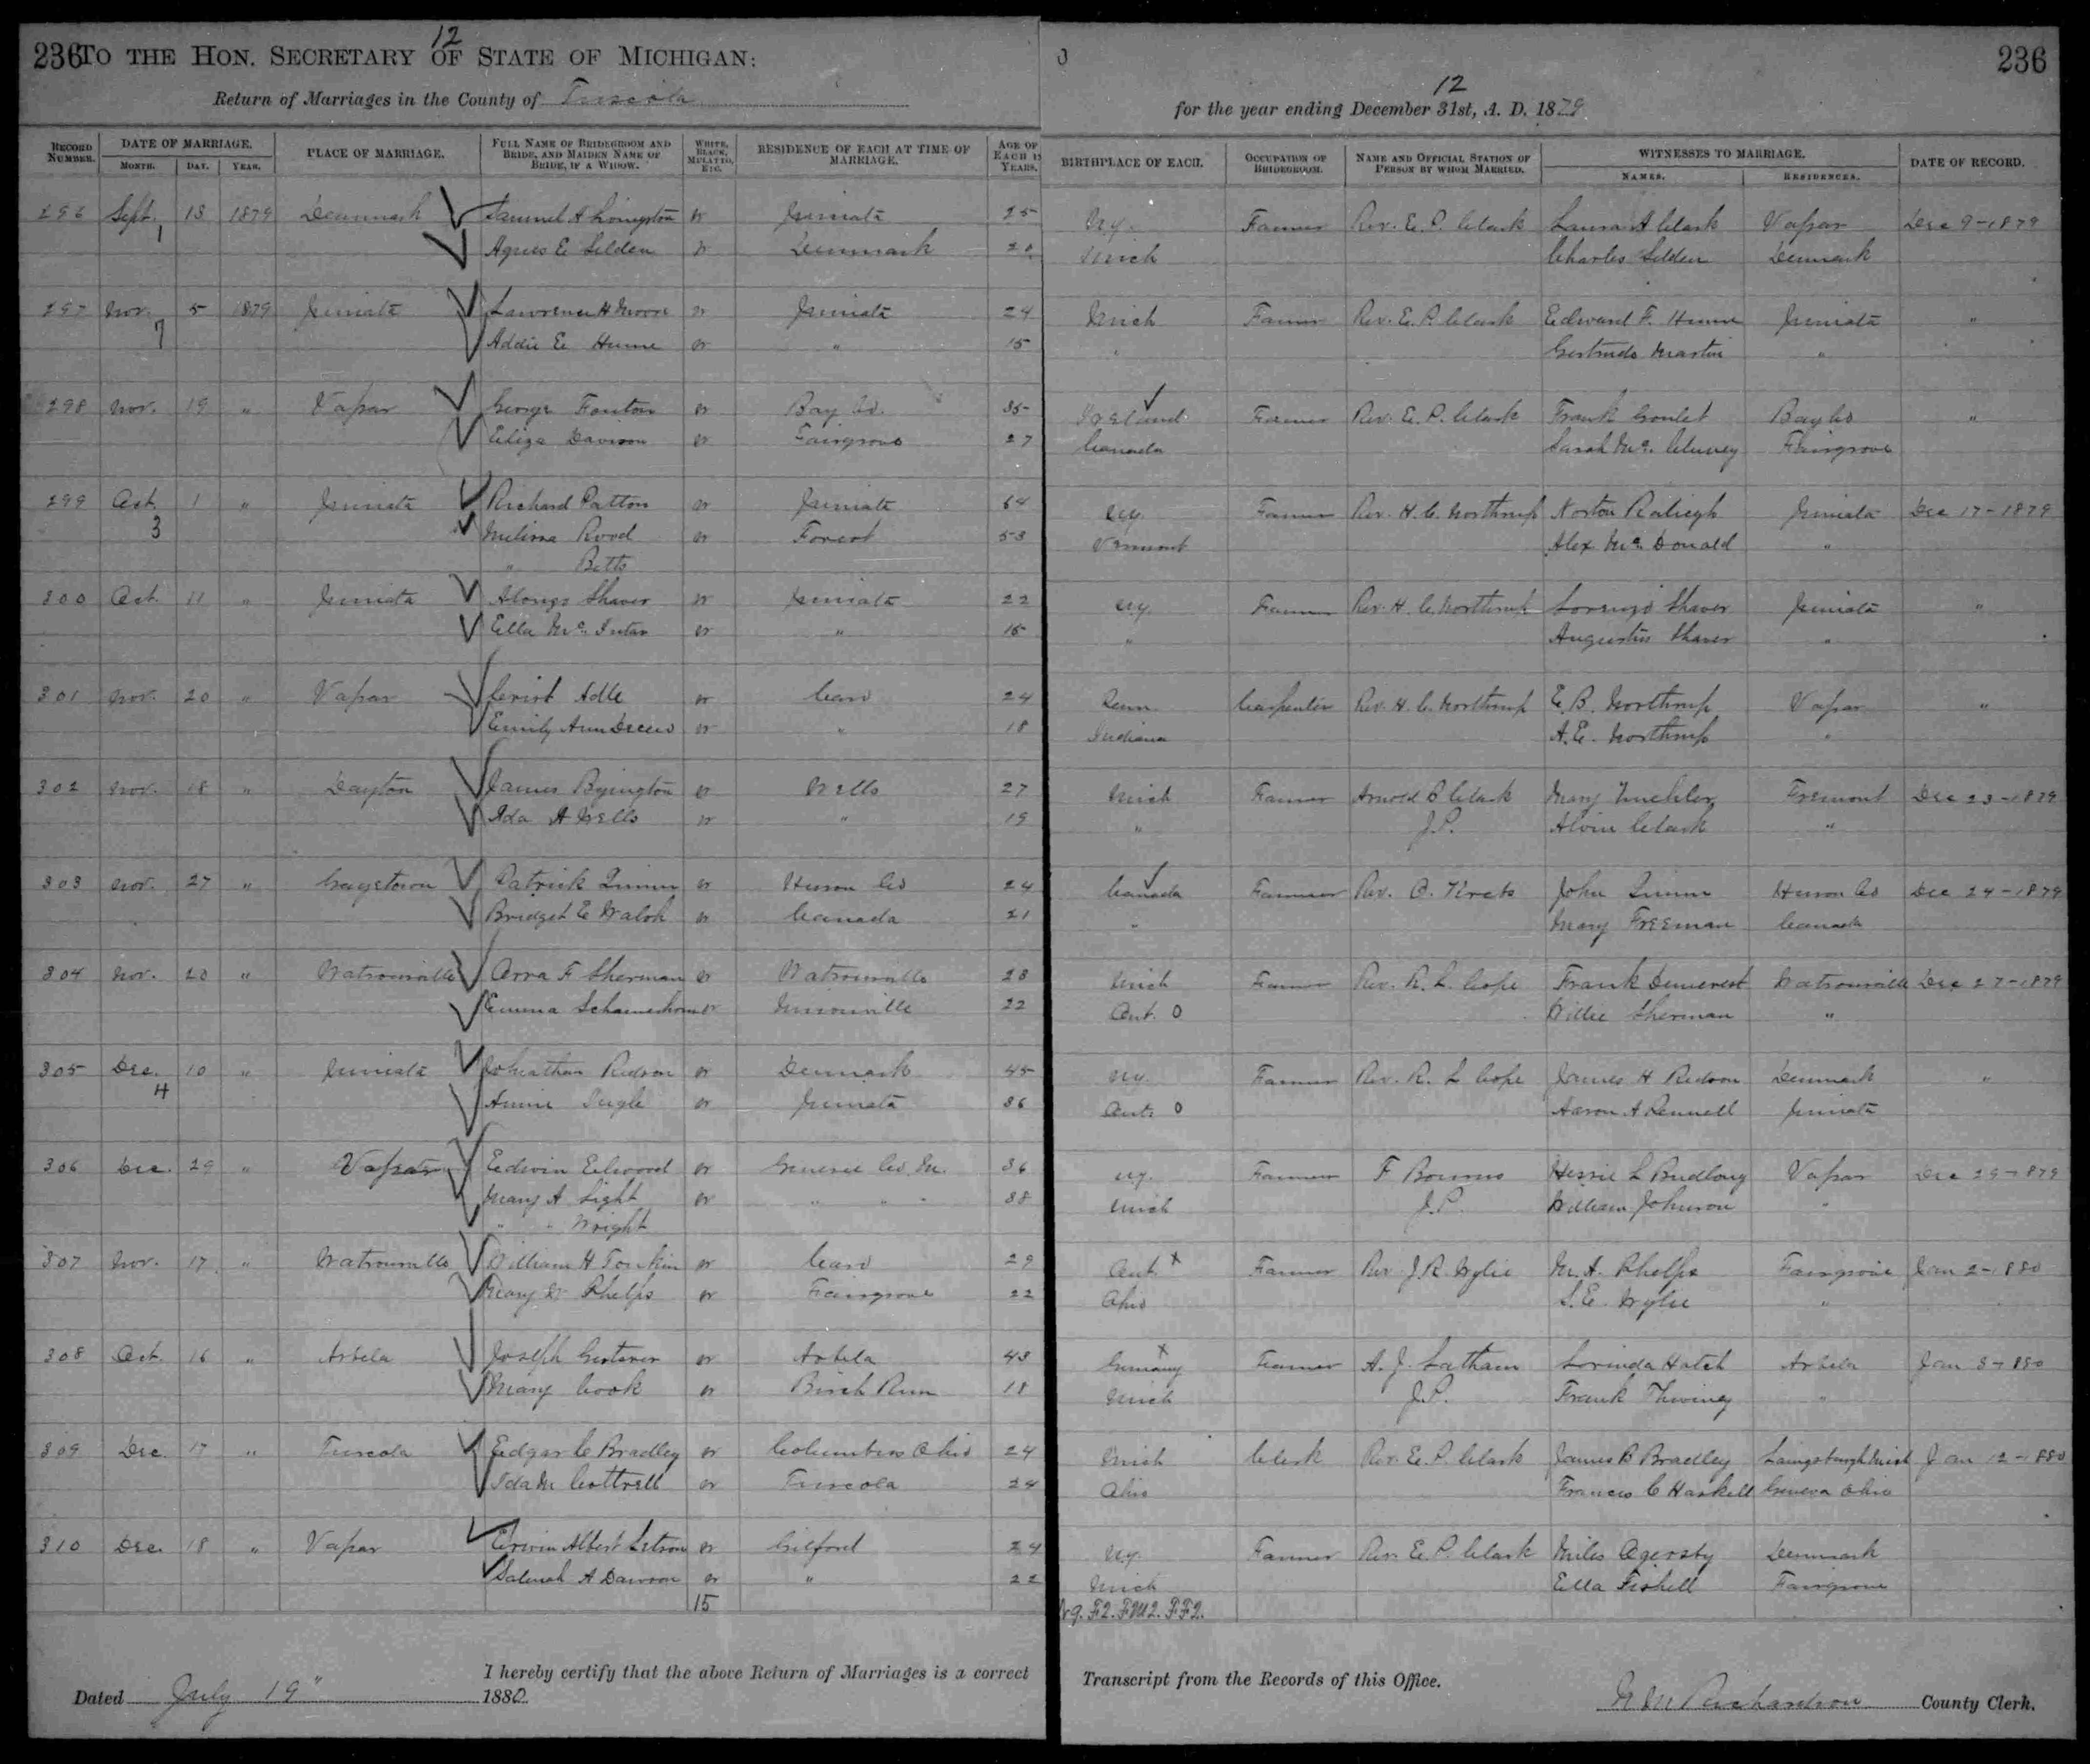 236 TO THE HON. SECRETARY OF STATE OF MICHIGAN: 12
Return of Marriages in the County of Tuscola
12 236
for the year ending December 31st, A. D. 1879
RECORD NUMBER. DATE OF MARRIAGE. MONTH. DAY. YEAR. PLACE OF MARRIAGE. FULL NAME OF BRIDEGROOM AND BRIDE, AND MAIDEN NAME OF BRIDE, IF A WIDOW. WHITE, BLACK, MULATTO, ETC. RESIDENCE OF EACH AT TIME OF MARRIAGE. AGE OF EACH IN YEARS. BIRTHPLACE OF EACH. OCCUPATION OF BRIDEGROOM. NAME AND OFFICIAL STATION OF PERSON BY WHOM MARRIED. WITNESSES TO MARRIAGE. NAMES. RESIDENCES. DATE OF RECORD.
296 Sept. 13 1879 Denmark Samuel A Livingston W Juniata 25 N.Y. Farmer Rev. E. P. Clark Laura A Clark Vassar Dec 9-1879
1 Agnes E Selden W Denmark 20 Mich Charles Selden Denmark
297 Nov. 5 1879 Juniata Lawrence H Moore W Juniata 24 Mich Farmer Rev. E. P. Clark Edward F. Hume Juniata "
7 Addie E Hume W " 15 " Gertrude Martin "
298 Nov. 19 " Vassar George Fenton W Bay Co. 35 Ireland Farmer Rev. E. P. Clark Frank Goulet Bay Co "
Eliza Davison W Fairgrove 27 Canada Sarah Mc. Cluney Fairgrove
299 Oct. 1 " Juniata Richard Patton W Juniata 64 N.Y. Farmer Rev. H. C. Northrup Norton Raliegh Juniata Dec 17-1879
3 Melissa Rood W Forest 53 Vermont Alex Mc. Donald "
" Betts
300 Oct. 11 " Juniata Alonzo Shaver W Juniata 22 N.Y. Farmer Rev. H. C. Northrup Lorenzo Shaver Juniata "
Ella Mc. W " " Augustus Shaver "
301 Nov. 20 " Vassar Adle W Caro 24 Penn Carpenter Rev. H. C. Northrup E. B. Northrup Vassar "
Emily Ann W " 18 Indiana A. E. Northrup "
302 Nov. 18 " Dayton James Byington W Wells 27 Mich Farmer Arnold B Clark Mary Fremont Dec 23-1879
Ada A Wells W " 19 " J.P. Alvin Clark "
303 Nov. 27 " Gagetown Patrick Quinn W Huron Co 24 Canada Farmer Rev. C. Krebs John Quinn Huron Co Dec 24-1879
Bridget E Walsh W Canada 21 " Mary Freeman Canada
304 Nov. 20 " Watrousville Orra F Sherman W Watrousville 28 Mich Farmer Rev. R. L. Cope Frank Demerest Watrousville Dec 27-1879
Emma W Unionville 22 Ont. O Willie Sherman "
305 Dec. 10 " Juniata Johnathan Ridson W Denmark 45 N.Y. Farmer Rev. R. L Cope James H Ridson Denmark "
4 Annie W Juniata 36 Ont. O Aaron A Juniata
306 Dec. 29 " Vassar Edwin Elwood W Genesee Co. M. 36 N.Y. Farmer F Bourns L Budlong Vassar Dec 29-1879
Mary A Light W " " " 38 Mich J.P. William Johnson "
" " Wright
307 Nov. 17 " Watrousville William H Tonkin W Caro 29 Ont. x Farmer Rev J. R. Wylie M. A. Phelps Fairgrove Jan 2-1880
Mary Phelps W Fairgrove 22 Ohio S. E. Wylie "
308 Oct. 16 " Arbela Joseph W Arbela 43 Germany x Farmer A. J. Latham Lorinda Hatch Arbela Jan 3-1880
Mary Cook W Birch Run 18 Mich J.P. Frank "
309 Dec. 17 " Tuscola Edgar C Bradley W Columbus Ohio 24 Mich Clerk Rev. E. P. Clark James B Bradley Laingsburgh Mich Jan 12-1880
Ida M Cottrell W Tuscola 24 Ohio Frances C Haskell Geneva Ohio
310 Dec. 18 " Vassar Erwin Albert Letson W Gilford 24 N.Y. Farmer Rev. E. P. Clark Miles Denmark
A Dawson W " 22 Mich Ella Fairgrove
15 F2. FM2. FF2.
I hereby certify that the above Return of Marriages is a correct Transcript from the Records of this Office.
Dated July 19" 1880. Richardson County Clerk.